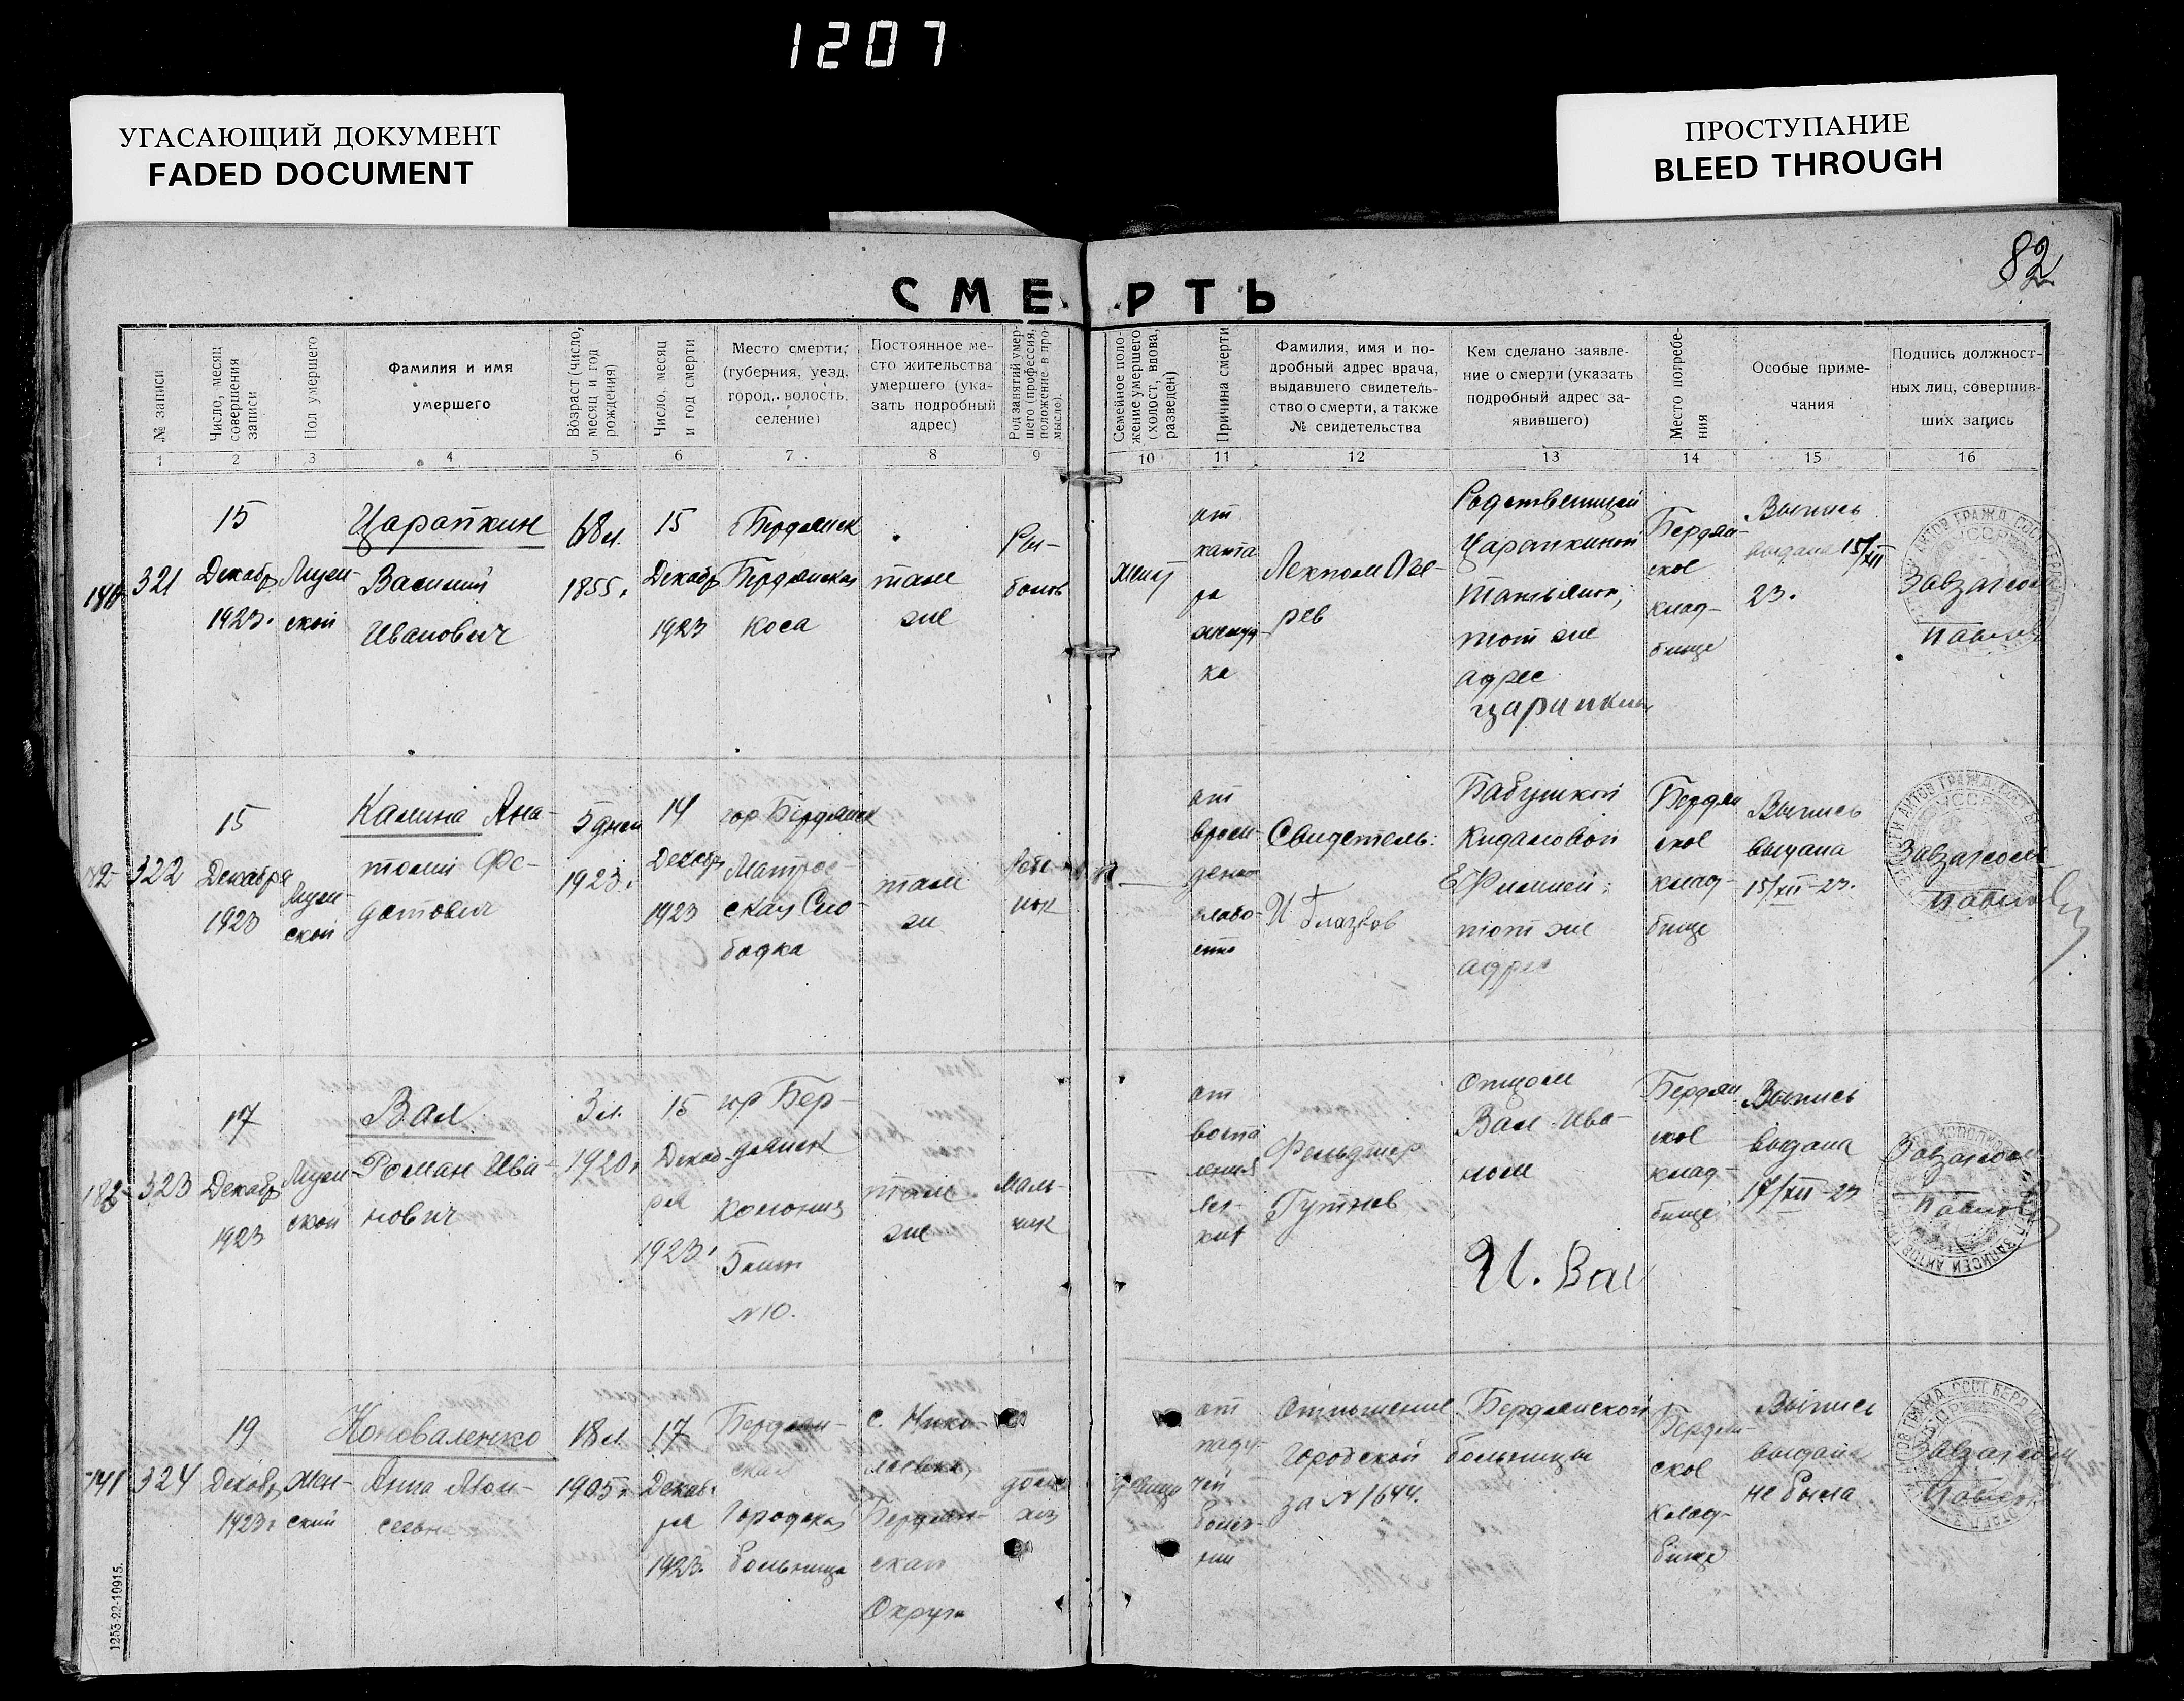 1207
УГАСАЮЩИЙ ДОКУМЕНТ
FADED DOCUMENT
ПРОСТУПАНИЕ
BLEED THROUGH
82
СМЕРТЬ
№ записи
Число, месяц совершения записи
Пол умершего
Фамилия и имя
умершего
Возраст (число, месяц и год рождения)
Число, месяц и год смерти
Место смерти,
(губерния, уезд,
город, волость,
селение)
Постоянное ме-
сто жительства
умершего (ука-
зать подробный
адрес)
Род занятий умер-
шего (профессия,
положение в про-
мысле).
Семейное поло-
жение умершего
(холост, вдова,
разведен)
Причина смерти
Фамилия, имя и по-
дробный адрес врача,
выдавшего свидетель-
ство о смерти, а также
№ свидетельства
Кем сделано заявле-
ние о смерти (указать
подробный адрес за-
явившего)
Место погребе-
ния
Особые приме-
чания
Подпись должност-
ных лиц, совершив-
ших запись
1 2 3 4 5 6 7 8 9 10 11 12 13 14 15 16
321
15
Декабр
1923.
Мужской
Царапкин
Василий
Иванович
68 л.
1855.
15
Декабр
1923
Бердянск
Бердянская
коса
там
же
Ры-
болов
женат
от
желуд
ка
Лекпом
Царапкиной
Татьяной,
тот же
адрес
Царапкин
Бердян
ское
клад-
бище
Выпись
выдана 15/XII
23.
Завзагсом
322
15
Декабря
1923
Мужской
Калина Ана-
толий Фе-
дотович
5 дней
1923.
14
Декабр
1923
гор Бердянск
Матрос
ская Сло-
бодка
там
же
от
врож-
ден
слабо-
сти
Свидетель:
Бабушкой
тот же
адрес
Бердян
ское
клад-
бище
Выпись
выдана
15/XII-23.
Завзагсом
323
17
Декабр
1923
Мужской
Вал
Роман Ива-
нович
3 л.
1920.
15
Декаб
ря
1923
гор Бер-
дянск
Колония
№10.
там
же
Маль-
чик
от
воспа
ления
лег-
ких
Фельдшер
Отцом
Вал Ива-
ном
И. Вал
Бердян
ское
клад-
бище
Выпись
выдана
17/XII-23
Завзагсом
324
19
Декабр
1923.
Жен-
ский
Коноваленко
Анна
18 л.
1905.
17
Декаб
ря
1923.
Бердян-
ская
Городская
больница
с. Нико-
лаевка,
Бердян-
ская
Округа
девица
от
паду-
чей
болез-
ни
Отношение Бердянской
Городской больницы
за №1644.
Бердян-
ское
клад-
бище
Выпись
выдана
не была
Завзагсом
1253-22-10915.